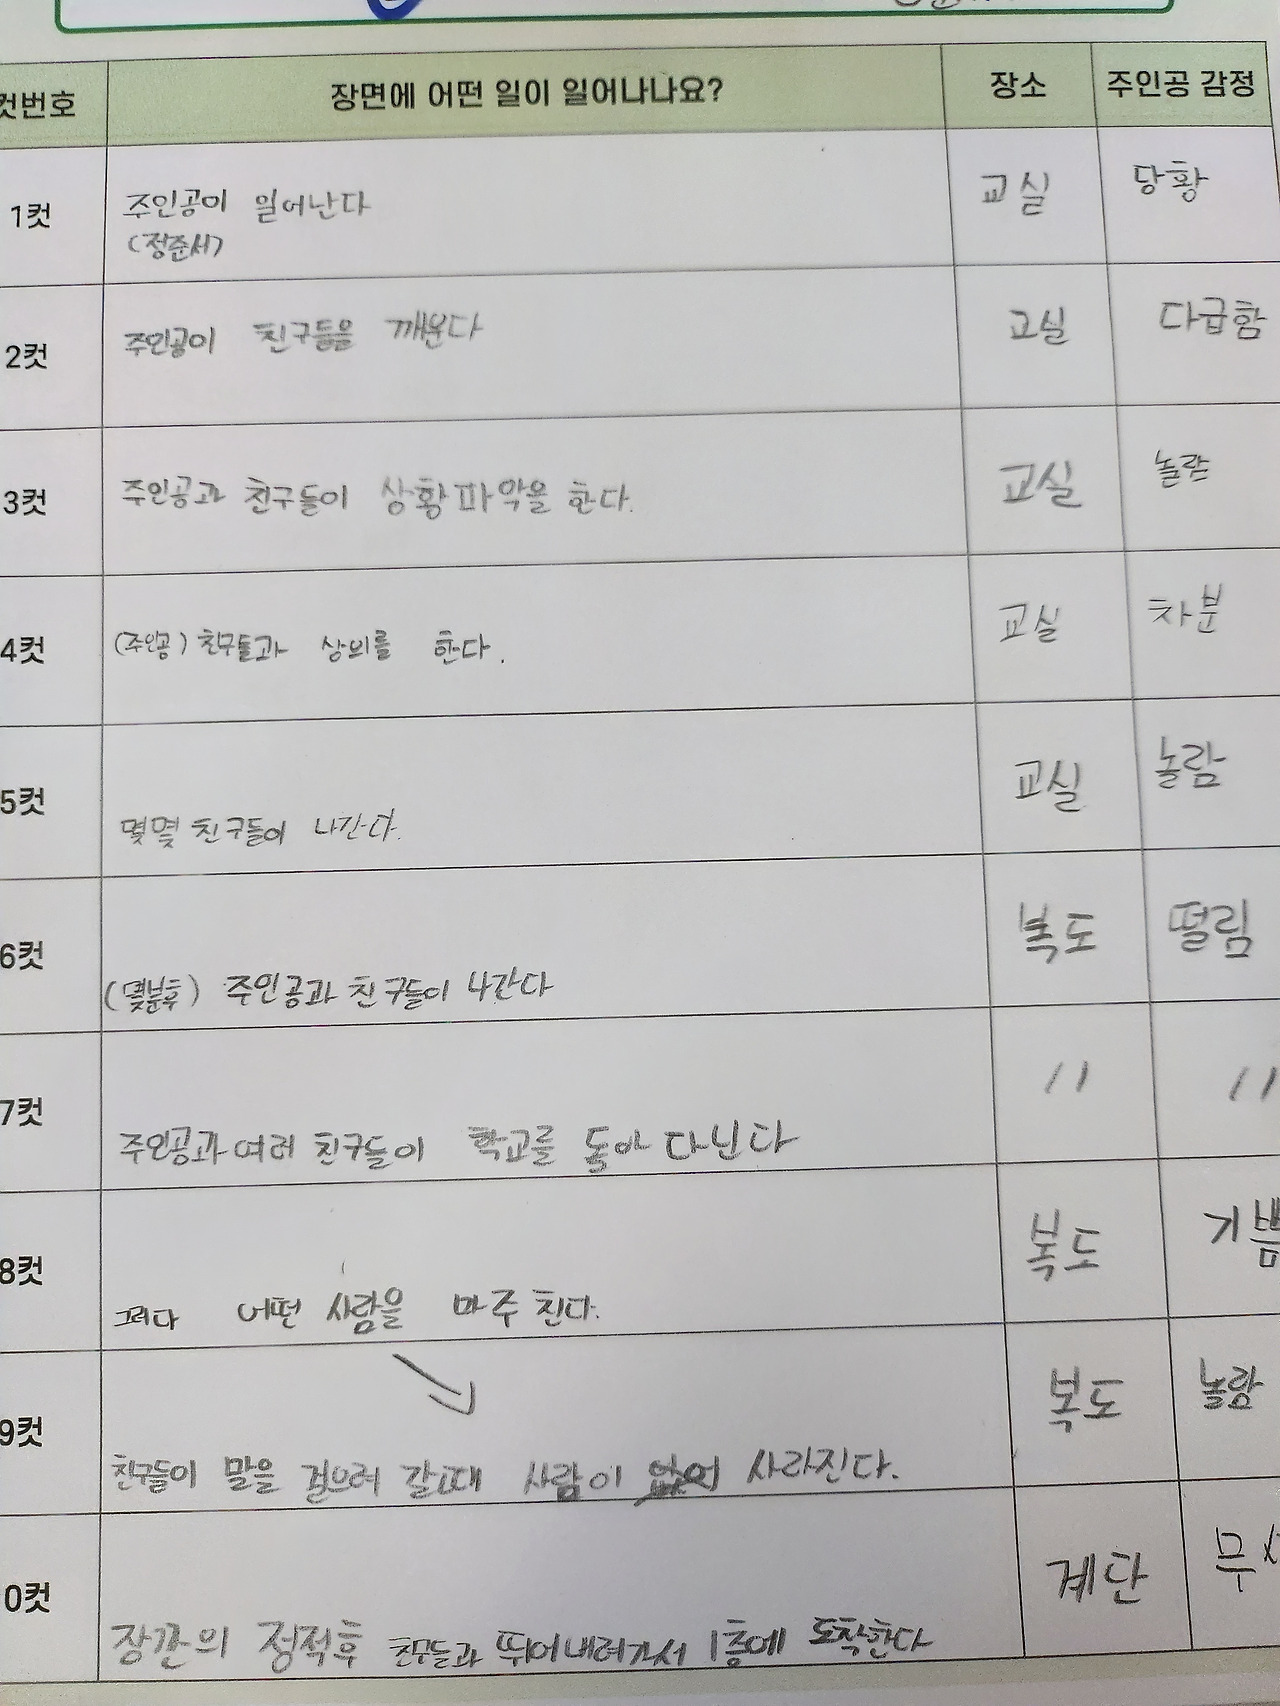 컷번호 장면에 어떤 일이 일어나나요? 장소 주인공 감정
1컷 주인공이 일어난다 교실 당황
(정준서)
2컷 주인공이 친구들을 깨운다 교실 다급함
3컷 주인공과 친구들이 상황파악을 한다. 교실 놀람
4컷 (주인공) 친구들과 상의를 한다. 교실 차분
5컷 몇몇 친구들이 나간다. 교실 놀람
6컷 (몇분후) 주인공과 친구들이 나간다 복도 떨림
7컷 주인공과 여러 친구들이 학교를 돌아 다닌다 〃 〃
8컷 그러다 어떤 사람을 마주친다. 복도 기쁨
9컷 친구들이 말을 걸으러 갈때 사람이 사라진다. 복도 놀람
0컷 장관의 정적후 친구들과 뛰어내려가서 1층에 도착한다 계단